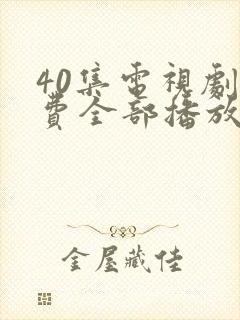 40集電視劇
費全部播放
金屋藏佳